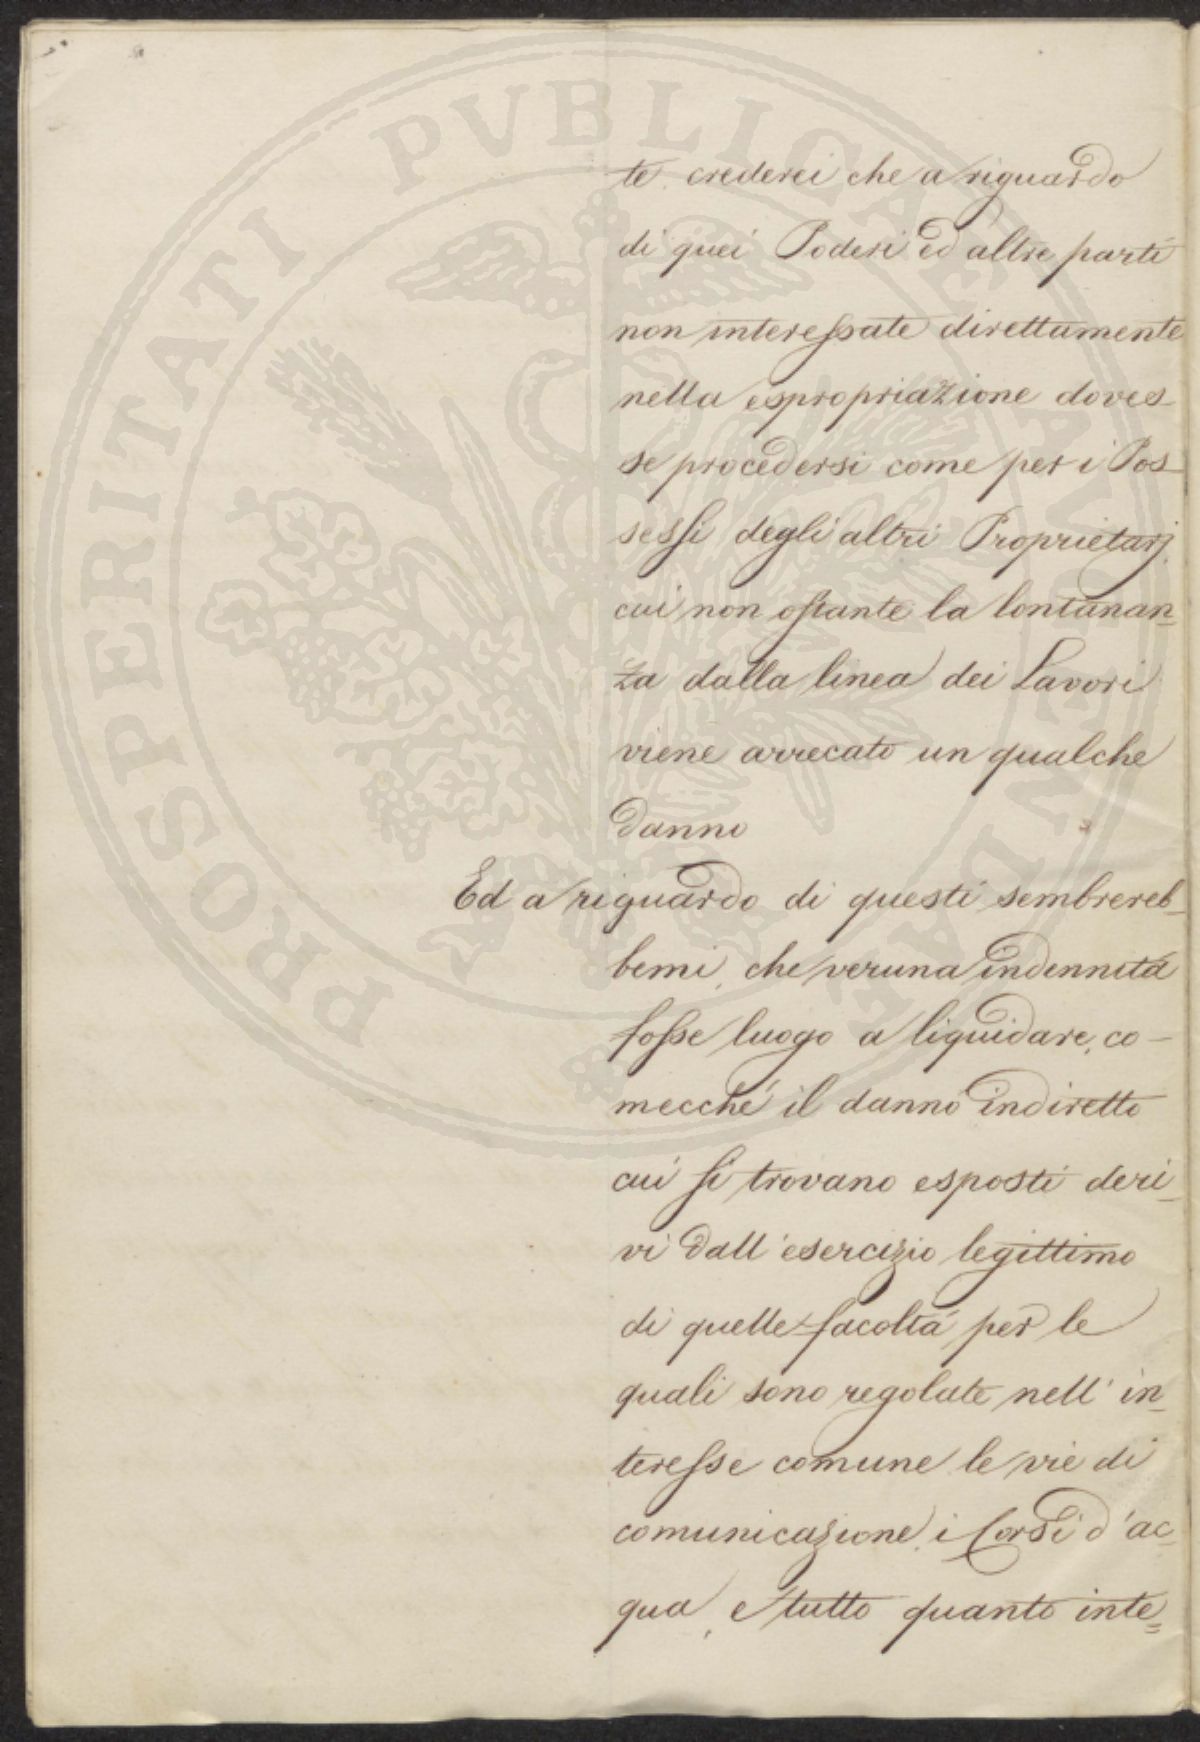 PROSPERITATI PVBLICAE AVGENDAE
te crederei che a riguardo
di quei Poderi ed altre parti
non interessate direttamente
nella espropriazione doves-
se procedersi come per i Pos-
sessi degli altri Proprietarj
cui non ostante la lontanan-
za dalla linea dei Lavori
viene arrecato un qualche
danno
Ed a riguardo di questi sembrereb-
bemi, che veruna indennitá
fosse luogo a liquidare, co-
mecché il danno indiretto
cui si trovano esposti deri-
vi dall'esercizio legittimo
di quelle facoltá per le
quali sono regolate nell'in-
teresse comune le vie di
comunicazione, i Corsi d'ac-
qua, e tutto quanto inte=